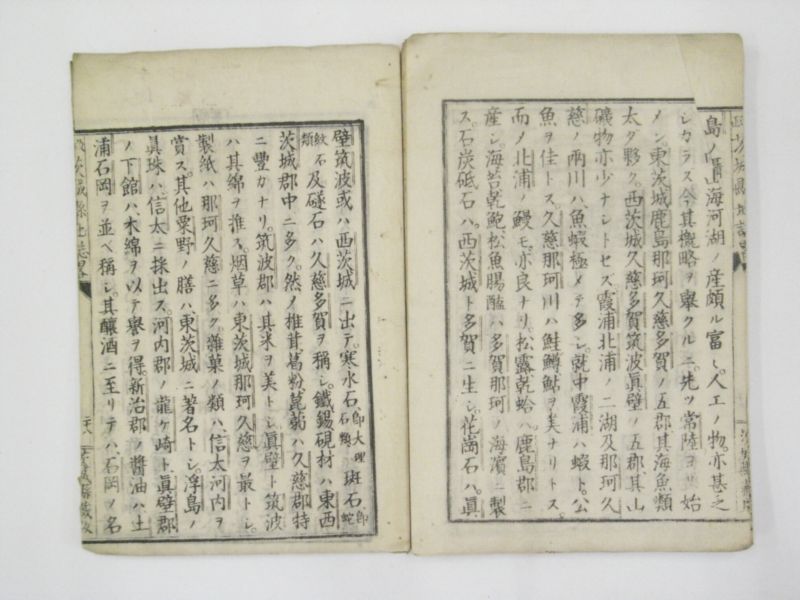 島ノ
海河湖ノ産頗ル富ミ人工ノ物亦甚乏
シカラス今其概略ヲ擧クルニ先ツ常陸ヨリ始
メン東茨城鹿島那珂久慈多賀ノ五郡其海魚類
太タ夥ク西茨城久慈多賀筑波眞壁ノ五郡其山
礦物亦少ナシトセズ霞浦北浦ノ二湖及那珂久
慈ノ兩川ハ魚蝦極メテ多シ就中霞浦ハ蝦ト公
魚ヲ佳トス久慈那珂川ハ鮭鱒鮎ヲ美ナリトス
而ノ北浦ノ鰻モ亦良ナリ松露乾蛤ハ鹿島郡ニ
産シ海苔乾鮑松魚腸醢ハ多賀那珂ノ海濱ニ製
ス石炭砥石ハ西茨城ト多賀ニ生シ花崗石ハ眞
壁筑波或ハ西茨城ニ出テ寒水石 即大理石 斑石 即蛇
紋石類 及燧石ハ久慈多賀ヲ稱シ鐵錫硯材ハ東西
茨城郡中ニ多ク然ノ椎茸葛粉蒟蒻ハ久慈郡特
ニ豐カナリ筑波郡ハ其米ヲ美トシ眞壁ト筑波
ハ其綿ヲ推ス烟草ハ東茨城那珂久慈ヲ最トシ
製紙ハ那珂久慈ニ多ク雜菓ノ類ハ信太河内ヲ
賞ス其他粟野ノ膳ハ東茨城ニ著名トシ浮島ノ
眞珠ハ信太ニ採出ス河内郡ノ龍ケ崎ト眞壁郡
ノ下館ハ木綿ヲ以テ譽ヲ得新治郡ノ醬油ハ土
浦石岡ヲ並ベ稱シ其釀酒ニ至リテハ石岡ノ名